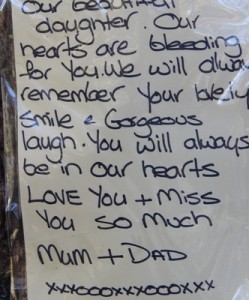 our beautiful
daughter. Our
hearts are bleeding
for You. We will always
remember Your lovely
Smile & Gorgeous
laugh. You will always
be in our hearts
LOVE You + Miss
You so much
Mum + DAD
xxxoooxxxoooxxx